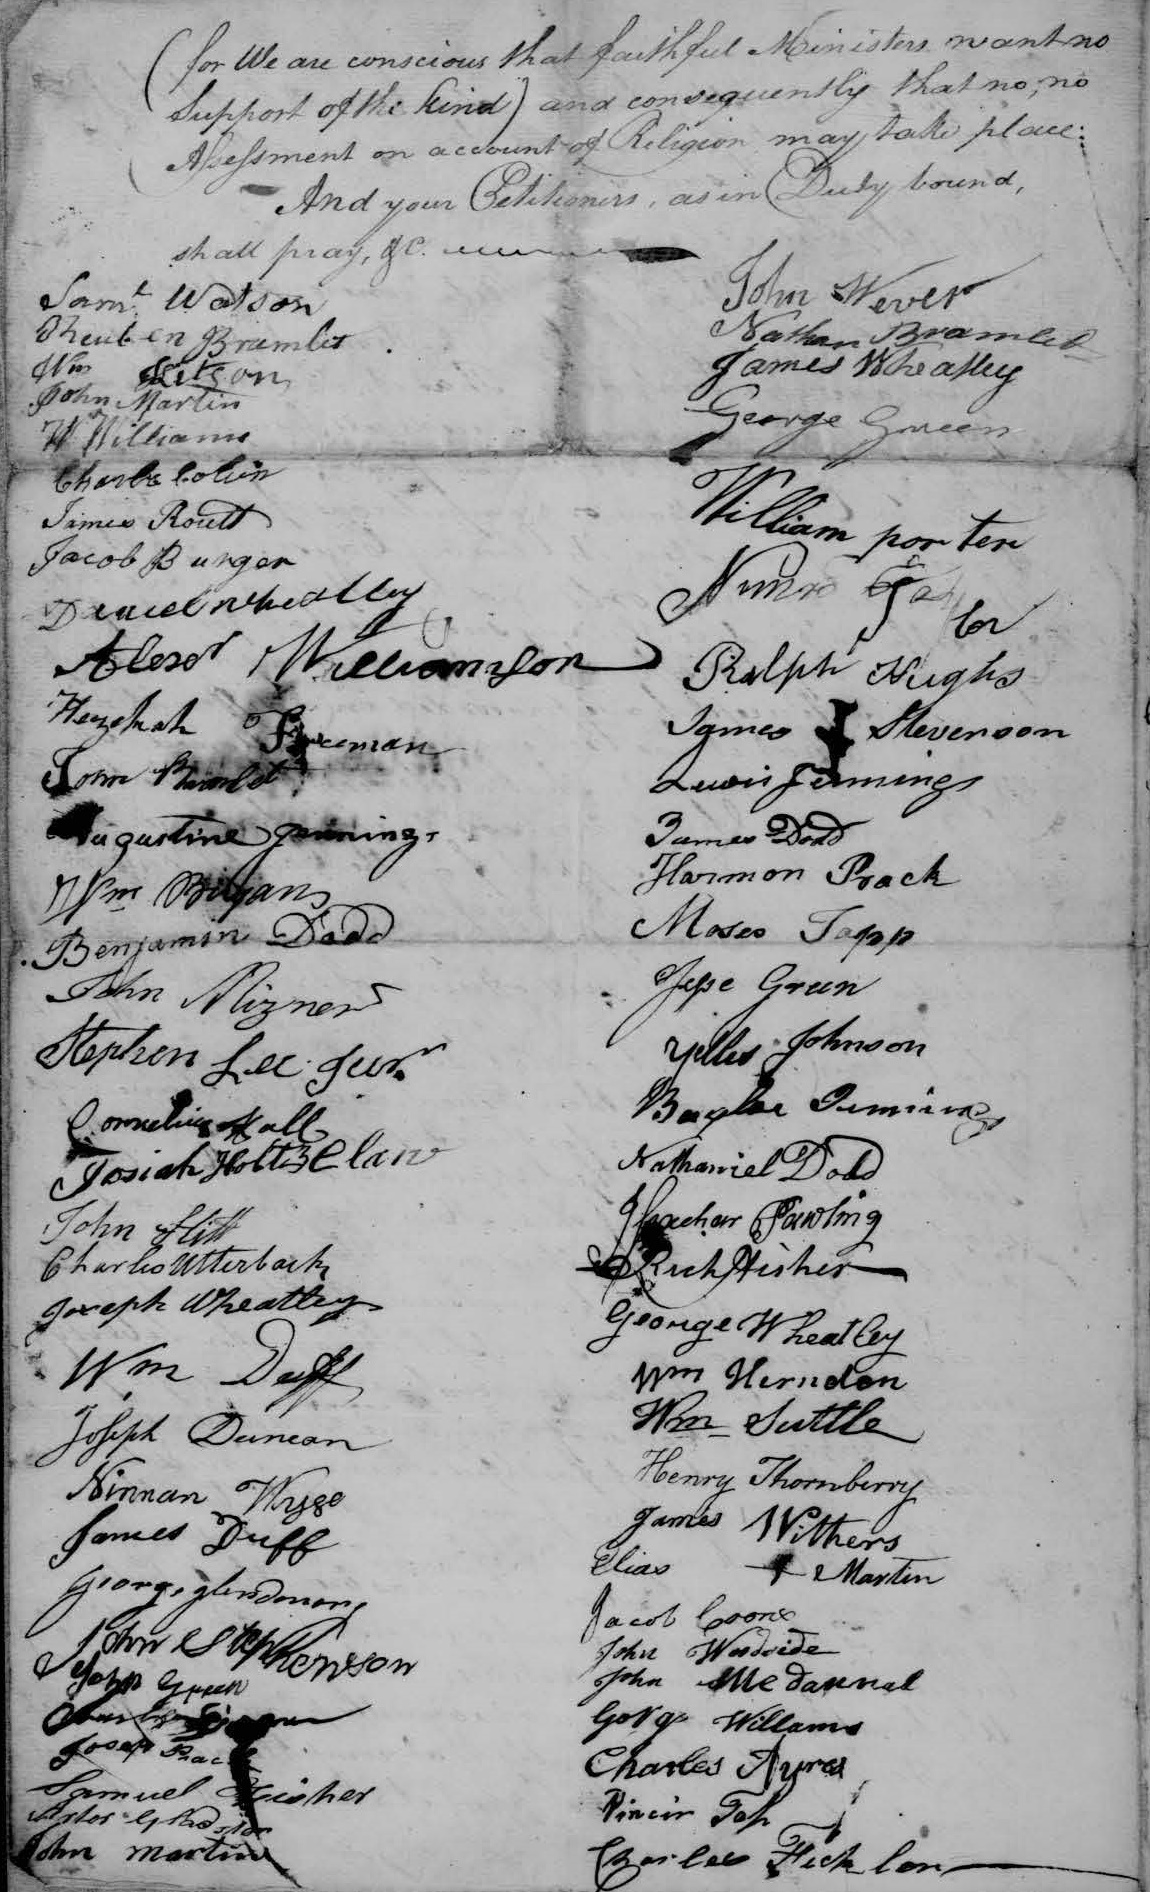 (for We are conscious that faithful Ministers want no
Support of the kind) and consequently that no, no
Assessment on account of Religion may take place:
And your Petitioners, as in Duty bound,
shall pray, &c.
Samt. Watson
Rheuben Bramlet
Wm Letson
John Martin
W Williams
Charls Colvin
James Routt
Jacob Burger
Daniel Wheatley
Alexdr Williamson
Hezekiah Freeman
John Bramlet
Augustine Jennings
Wm
Benjamin Dodd
John Mizner
Stephen Lee Junr.
Cornelius Hall
Josiah Holtzclaw
John Hitt
Charles Utterback
Joseph Wheatley
Wm Duff
Joseph Duncan
Ninnan Wyse
James Duff
George glendoning
John Stephenson
John Green
Charles
Joseph
Samuel Fisher
John Martin
John Wever
Nathan Bramlet
James Wheatley
George Green
William porter
Nimro Taylor
Ralph Hughs
James Stevenson
Lewis Jennings
James Dodd
Harmon Prack
Moses Tapp
Jesse Green
Yelles Johnson
Baylor Jennings
Nathaniel Dodd
Issachar Pawling
Rich Fisher
George Wheatley
Wm Herndon
Wm Suttle
Henry Thornberry
James Withers
Elias + Martin
Jacob Coons
John Woodside
John McDannal
Gorge Willams
Charles Ayres
Vincin Tap
Charles Ficklen